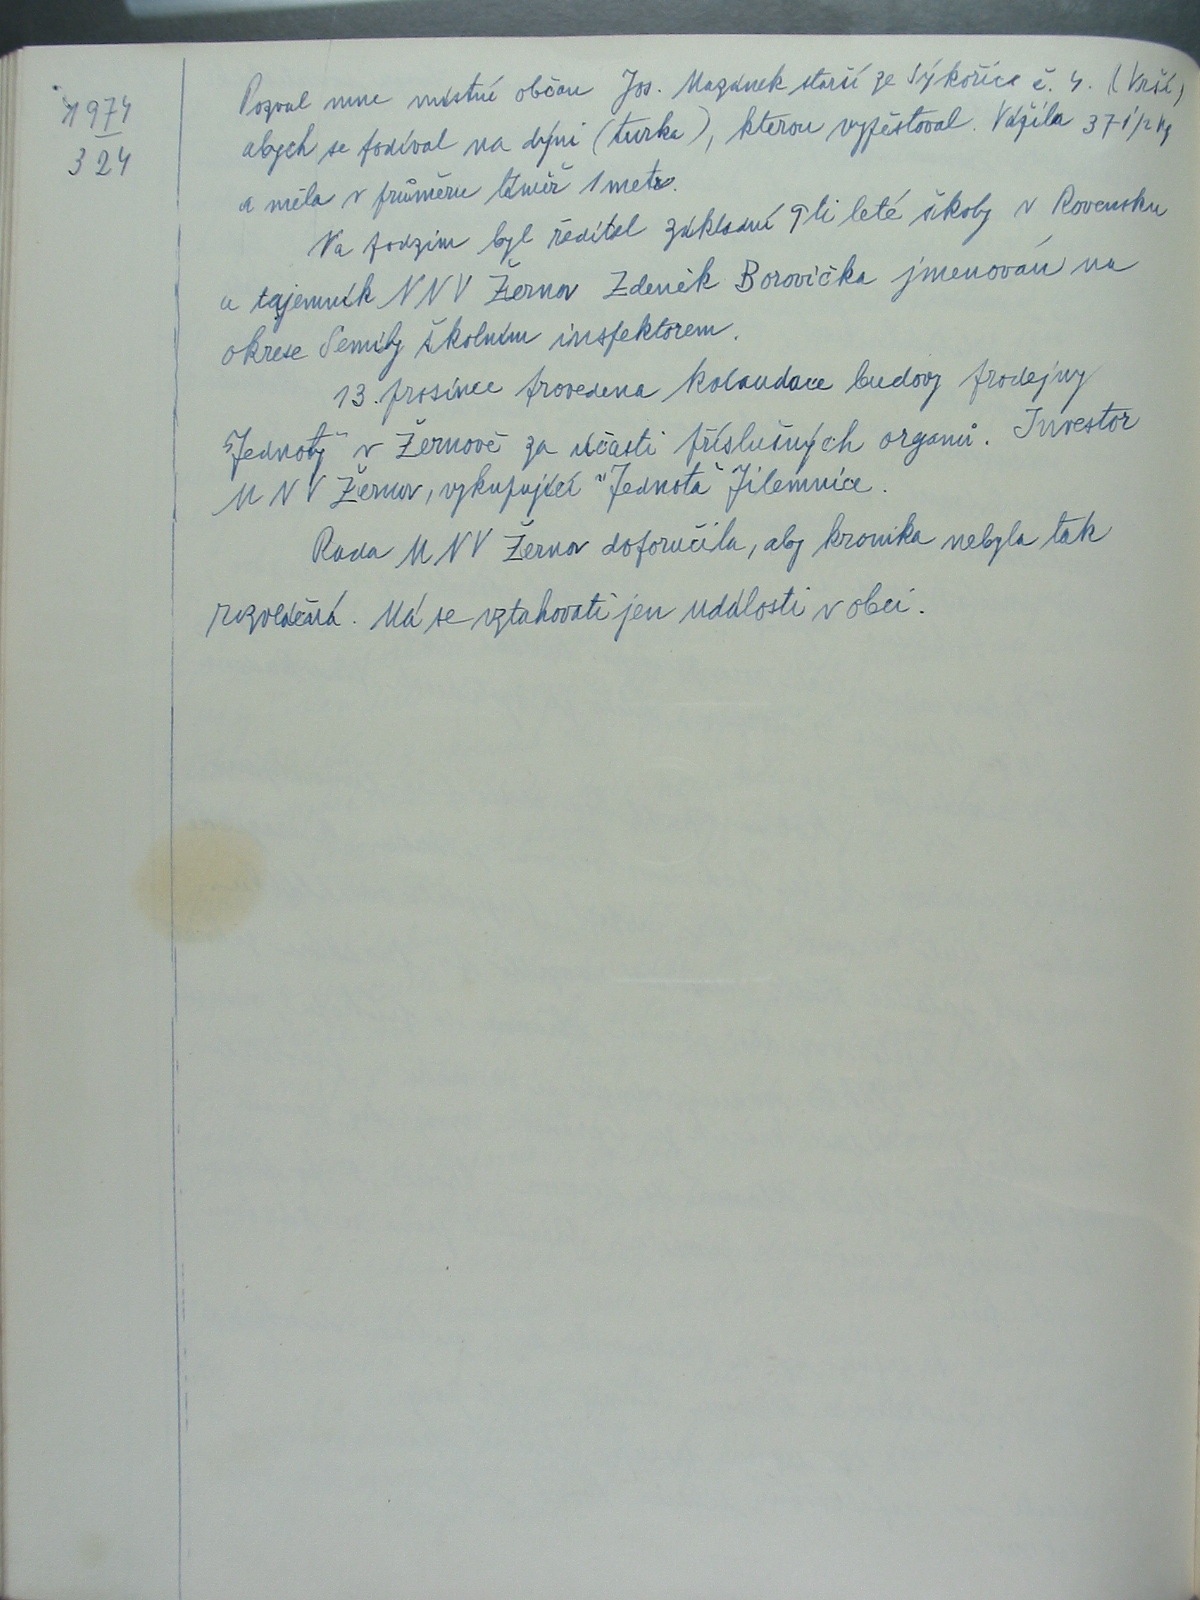 1974
324
Pozval mne místní občan Jos. Mazánek starší ze Sýkořice č. 4. (Vrší)
abych se podíval na dýni (turka), kterou vypěstoval. Vážila 37 1/2 kg
a měla v průměru téměř 1 metr.
Na podzim byl ředitel základní 9ti leté školy v Rovensku
a tajemník MNV Žernov Zdeněk Borovička jmenován na
okrese Semily školním inspektorem.
13. prosince provedena kolaudace budovy prodejny
"Jednoty" v Žernově za účasti příslušných orgánů. Investor
MNV Žernov, vykupující "Jednota" Jilemnice.
Rada MNV Žernov doporučila, aby kronika nebyla tak
rozvláčná. Má se vztahovati jen událostí v obci.